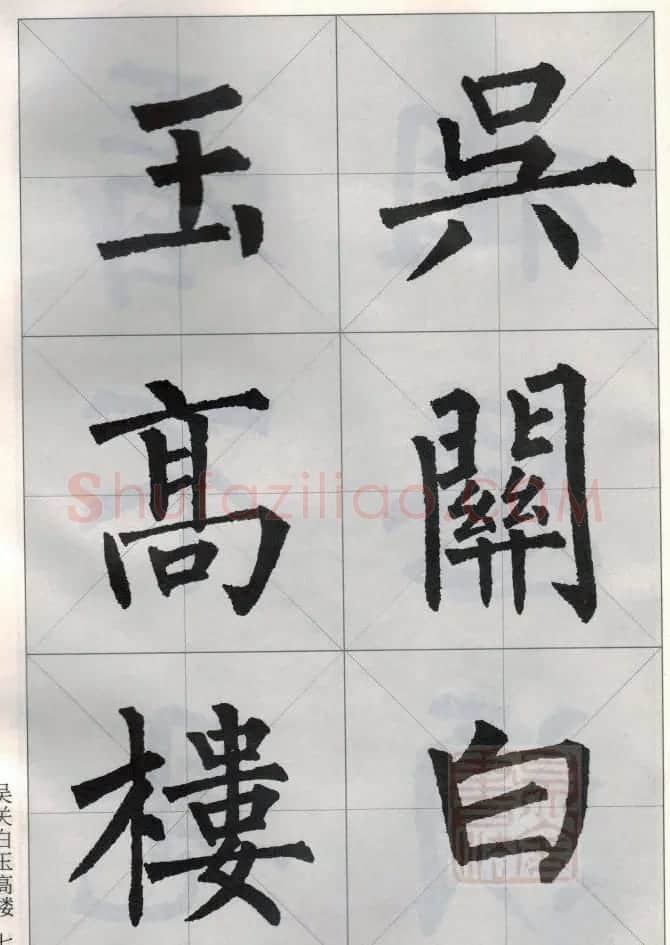 吳關白
玉髙樓
Shufaziliao.COM
吴关白玉高楼 七